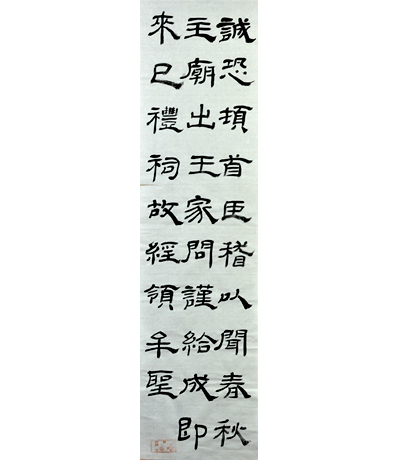 誠恐頓首臣稽以聞春秋
主廟出王家問謹給成即
來已禮祠故經領牟聖